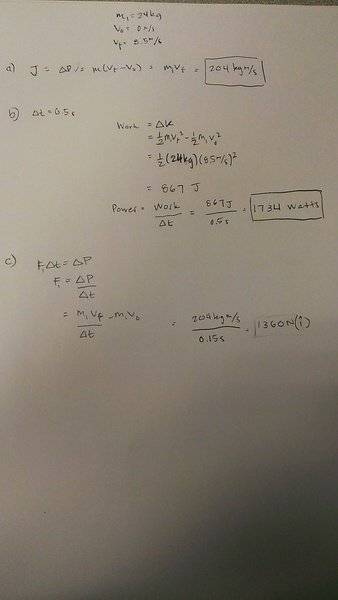 m₁ = 24kg
V₀ = 0 m/s
V_f = 8.5 m/s
a) J = ΔP = m(V_f - V₀) = m₁V_f = 204 kg m/s
b) Δt = 0.5s
Work = ΔK
= ½m₁V_f² - ½m₁V₀²
= ½(24kg)(8.5 m/s)²
= 867 J
Power = Work/Δt = 867J/0.5s = 1734 Watts
c) F₁Δt = ΔP
F₁ = ΔP/Δt
= m₁V_f - m₁V₀/Δt = 204kg m/s/0.15s = 1360N(î)